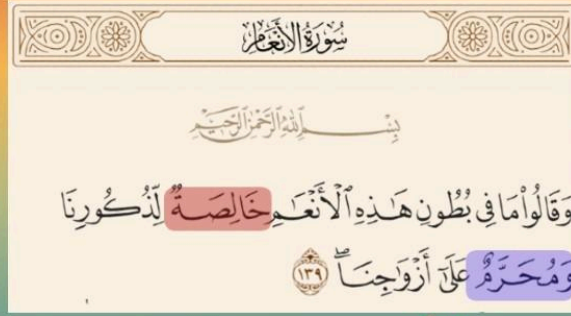 سُورَةُ الأَنْعَامِ
بِسْمِ ٱللَّهِ ٱلرَّحْمَٰنِ ٱلرَّحِيمِ
وَقَالُوا۟ مَا فِى بُطُونِ هَـٰذِهِ ٱلْأَنْعَـٰمِ خَالِصَةٌ لِّذُكُورِنَا
وَمُحَرَّمٌ عَلَىٰٓ أَزْوَٰجِنَا ۖ ١٣٩